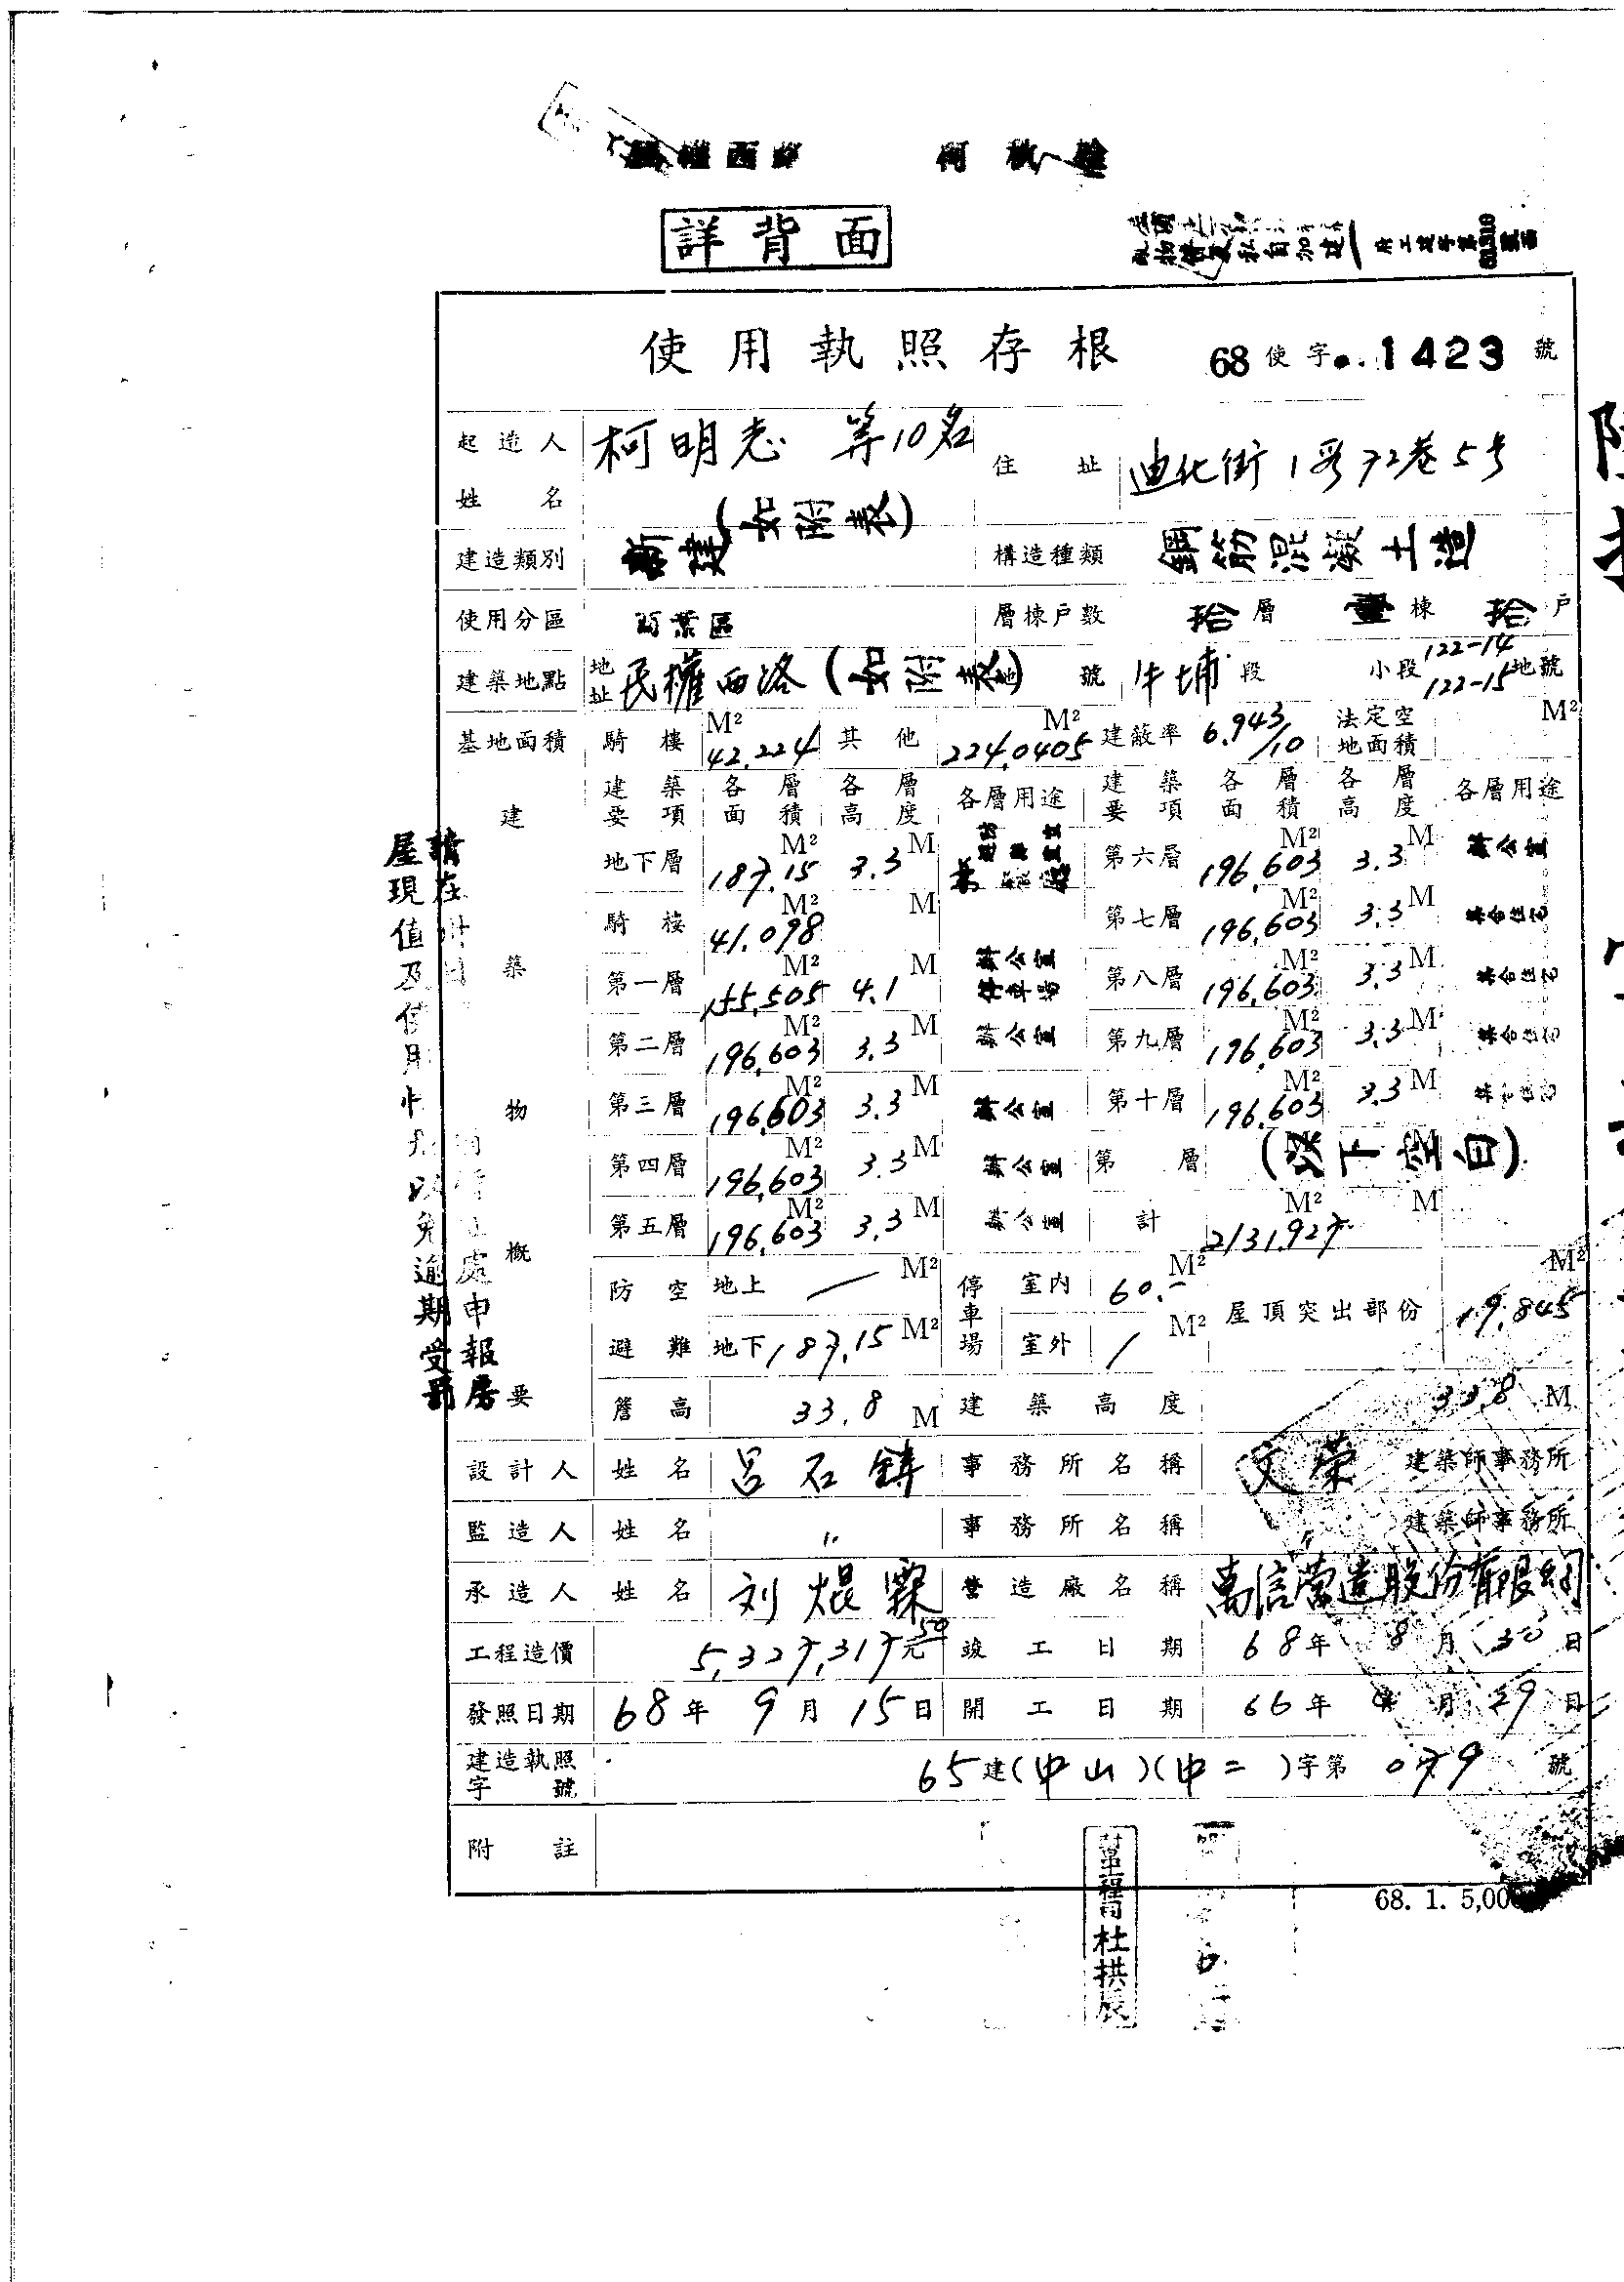 詳背面
使用執照存根 68使字 1423 號
起造人姓名 柯明志 等10名 (如附表) 住址 迪化街1段72巷5号
建造類別 新建 構造種類 鋼筋混凝土造
使用分區 商業區 層棟戶數 拾層 壹棟 拾戶
建築地點 地址 民權西路(如附表) 地號 牛埔段 小段 122-14 122-15 地號
基地面積 騎樓 42.224 M² 其他 224.0405 M² 建蔽率 6.943/10 法定空地面積 M²
建築物概要
建築要項 各層面積 各層高度 各層用途 建築要項 各層面積 各層高度 各層用途
地下層 187.15 M² 3.3 M 第六層 196.603 M² 3.3 M 辦公室
騎樓 41.098 M² M 第七層 196.603 M² 3.3 M 集合住宅
第一層 155.505 M² 4.1 M 辦公室 停車場 第八層 196.603 M² 3.3 M 集合住宅
第二層 196.603 M² 3.3 M 辦公室 第九層 196.603 M² 3.3 M 集合住宅
第三層 196.603 M² 3.3 M 辦公室 第十層 196.603 M² 3.3 M 集合住宅
第四層 196.603 M² 3.3 M 辦公室 第 層 (以下空白)
第五層 196.603 M² 3.3 M 辦公室 計 2131.927 M² M
防空避難 地上 — M² 停車場 室內 60.- M² 屋頂突出部份 19.845 M²
地下 187.15 M² 室外 / M²
簷高 33.8 M 建築高度 33.8 M
設計人 姓名 呂石鑄 事務所名稱 文榮 建築師事務所
監造人 姓名 〃 事務所名稱 〃 建築師事務所
承造人 姓名 刘焜霖 營造廠名稱 萬信營造股份有限公司
工程造價 5,327,317元50 竣工日期 68年8月30日
發照日期 68年9月15日 開工日期 66年 月29日
建造執照字號 65建(中山)(中二)字第079號
附註
68. 1. 5,00
工程司 杜拱辰